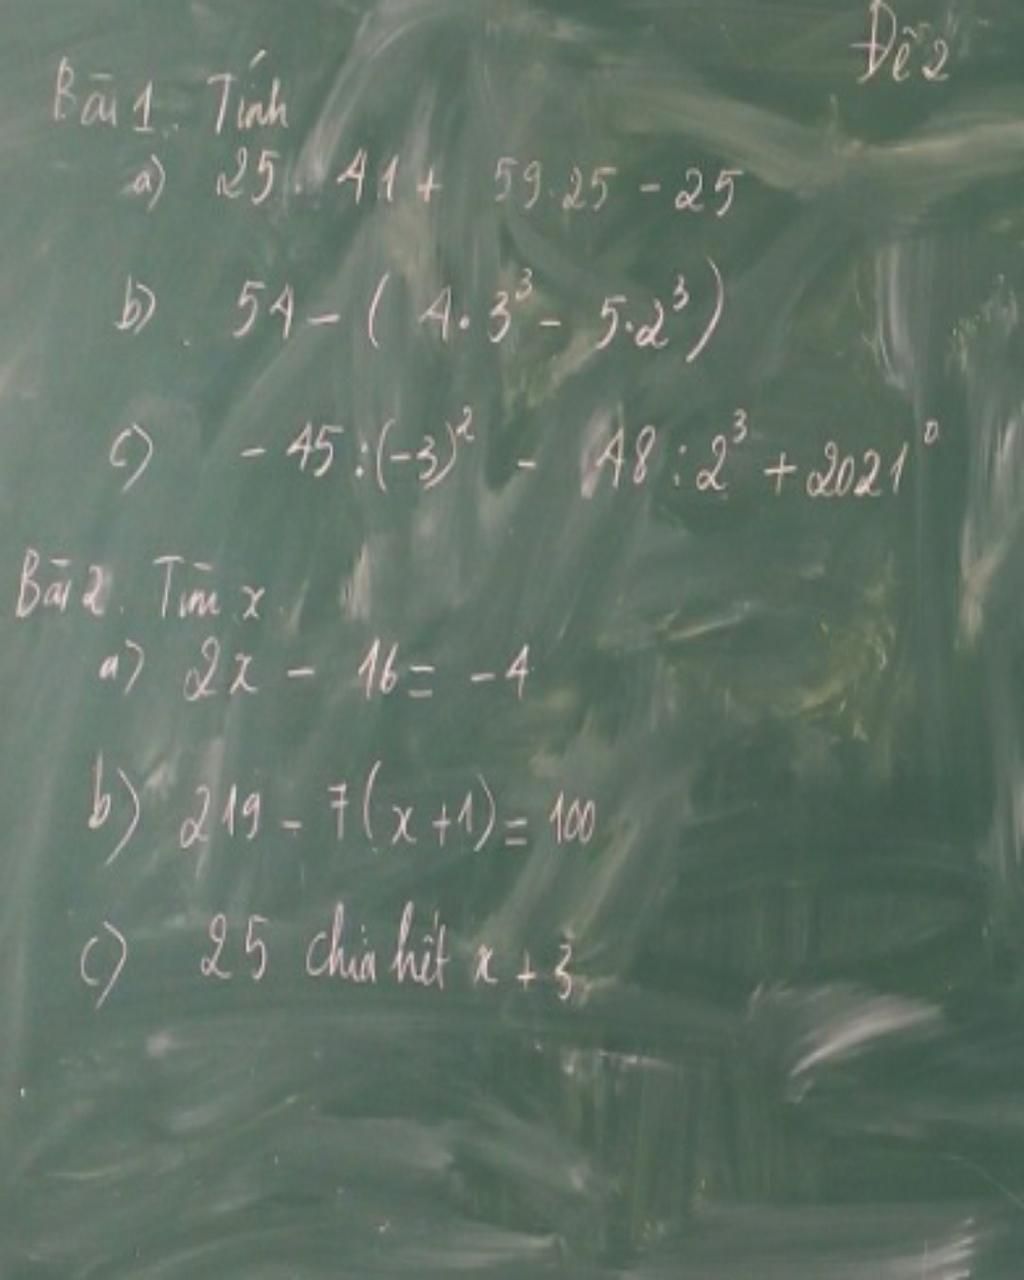 Đề 2
Bài 1. Tính
a) 25 . 41 + 59.25 - 25
b) 54 - ( 4.3³ - 5.2³ )
c) - 45 : (-3)² - 48 : 2³ + 2021⁰
Bài 2. Tìm x
a) 2x - 16 = - 4
b) 219 - 7(x+1) = 100
c) 25 chia hết x + 3